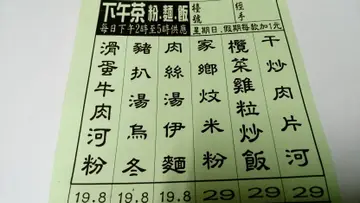 下午茶 粉、麵、飯
每日下午2時至5時供應
檯號
經手
星期日、假期每款加1元
滑蛋牛肉河粉
豬扒湯烏冬
肉絲湯伊麵
家鄉炆米粉
欖菜雞粒炒飯
干炒肉片河
19.8
19.8
19.8
29
29
29